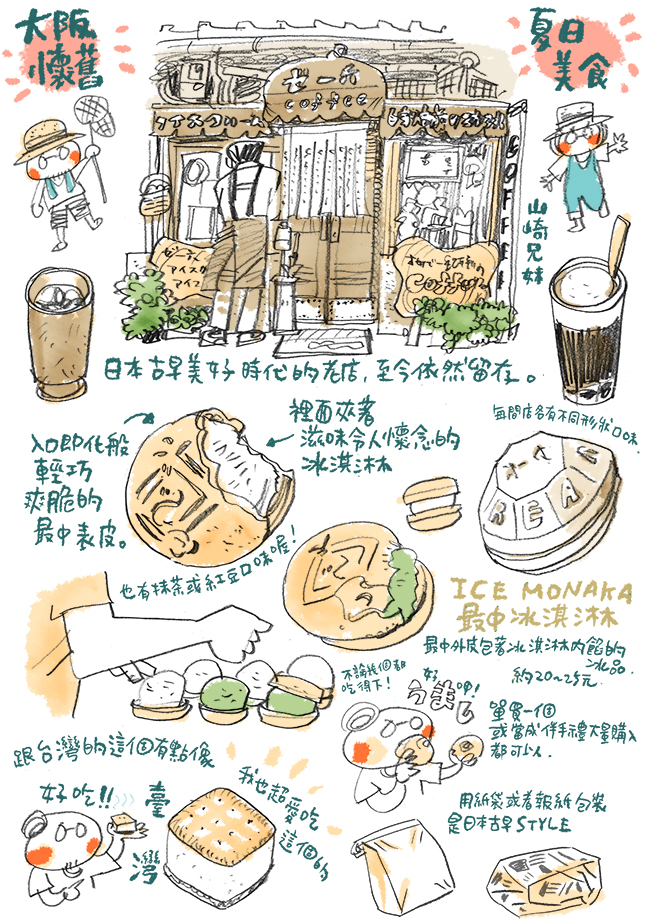 大阪
懷舊
夏日
美食
ゼー六
coffee
アイスクリーム
COFFEE
アイスク
アイス
coffee
山崎兄妹
日本古早美好時代的老店,至今依然留存。
入口即化般
輕巧
爽脆的
最中表皮。
裡面夾著
滋味令人懷念的
冰淇淋
每間店各有不同形狀口味.
也有抹茶或紅豆口味喔!
ICE MONAKA
最中冰淇淋
最中外皮包著冰淇淋內餡的
冰品.
約20~25元.
不論幾個都
吃得下!
好
單買一個
或當成伴手禮大量購入
都可以.
跟台灣的這個有點像
好吃!!
臺
灣
我也超愛吃
這個的
用紙袋或者報紙包裝
是日本古早STYLE